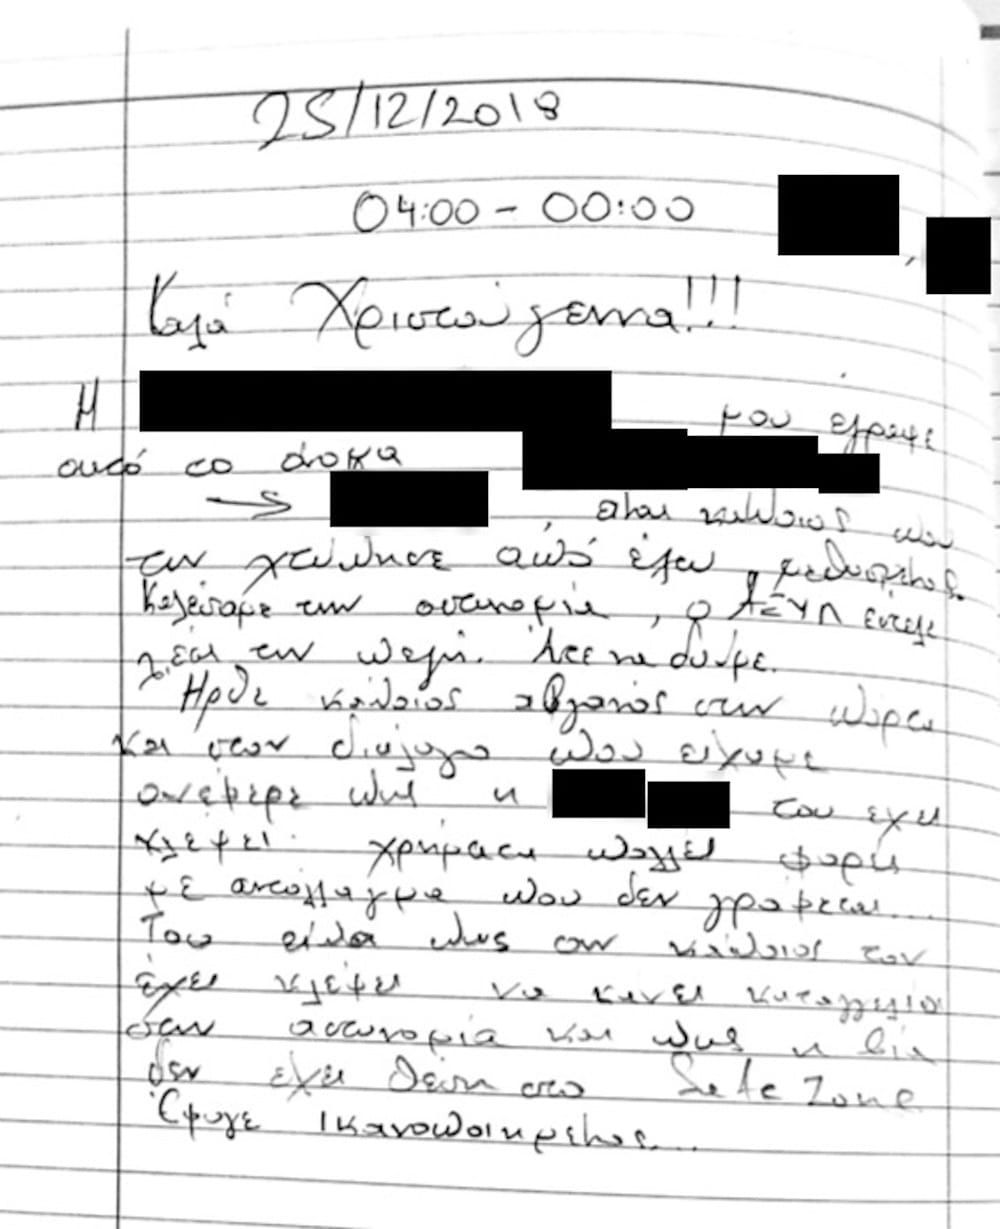 25/12/2018
04:00 - 00:00
Καλά Χριστούγεννα!!!
Η μου έγραψε
αυτό το όνομα
→ είναι κάποιος που
την χτύπησε από έξω, μεθυσμένος.
Καλέσαμε την αστυνομία, ο ΑΣΥΛ
την Άντε να δούμε.
Ήρθε κάποιος αβγανός στην πόρτα
και στον διάλογο που είχαμε
ανέφερε πως η του έχει
κλέψει χρήματα πολλές φορές
με αντάλλαγμα που δεν γράφεται...
Του είπα πως αν κάποιος τον
έχει κλέψει να κάνει καταγγελία
στην αστυνομία και πως η βία
δεν έχει θέση στο Safe Zone
Έφυγε ικανοποιημένος...